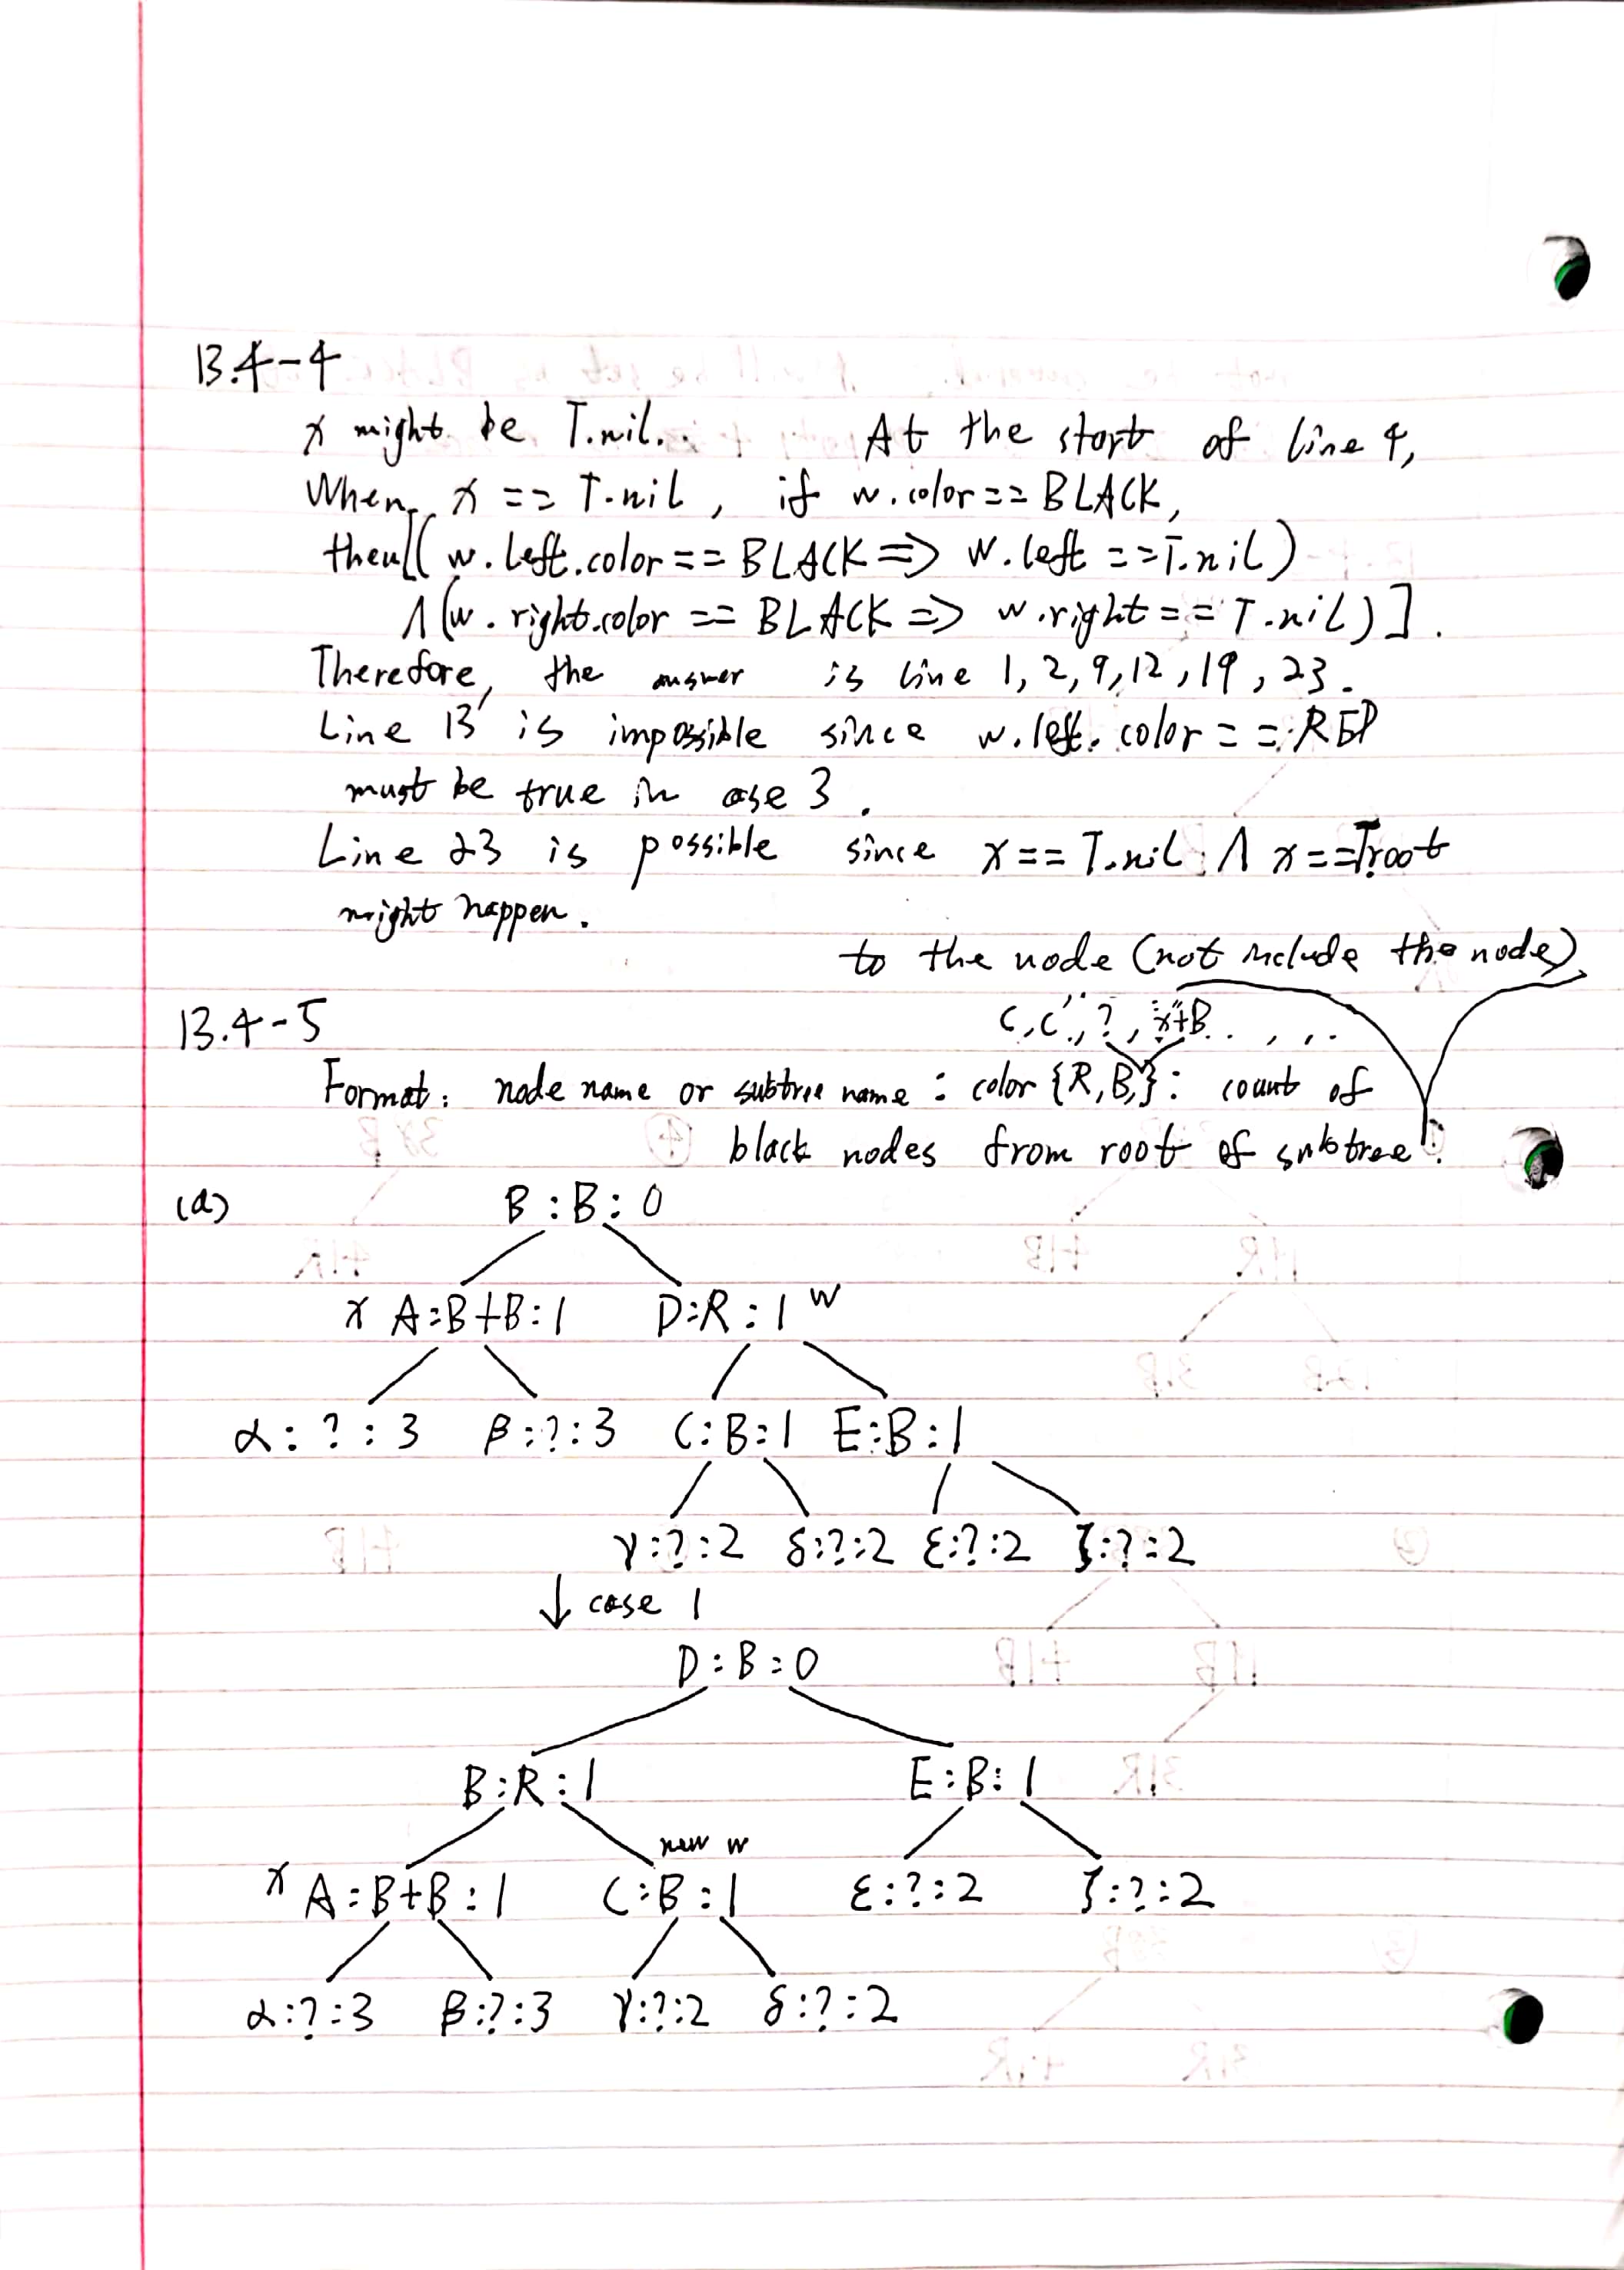 13.4-4
x might be T.nil. At the start of line 4,
When x == T.nil, if w.color == BLACK,
then[(w.left.color == BLACK => w.left == T.nil)
∧(w.right.color == BLACK => w.right == T.nil)].
Therefore, the answer is line 1, 2, 9, 12, 19, 23.
Line 13 is impossible since w.left.color == RED
must be true in case 3.
Line 23 is possible since x == T.nil ∧ x == T.root
might happen.
to the node (not include the node)
13.4-5
c, c', ?, +B
Format: node name or subtree name : color {R,B,}: count of
black nodes from root of subtree.
(a)
B:B:0
x A:B+B:1 D:R:1 w
α:?:3 β:?:3 C:B:1 E:B:1
γ:?:2 δ:?:2 ε:?:2 ζ:?:2
↓ case 1
D:B:0
B:R:1 E:B:1
new w
x A:B+B:1 C:B:1 ε:?:2 ζ:?:2
α:?:3 β:?:3 γ:?:2 δ:?:2